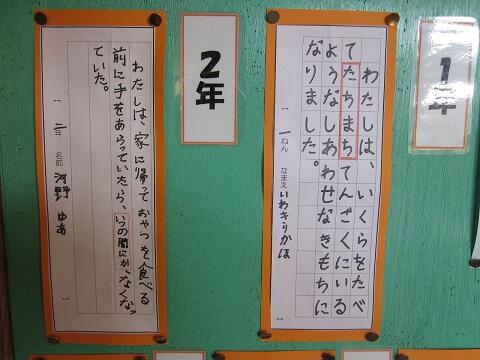 1年
わたしは、いくらをたべ
てたちまちてんごくにいる
ようなしあわせなきもちに
なりました。
【 一ねん なまえ いわきりかほ 】
2年
わたしは、家に帰っておやつを食べる
前に手をあらっていたら、いつの間にか、なくなっ
ていた。
【 二年 名前 河野 ゆあ 】